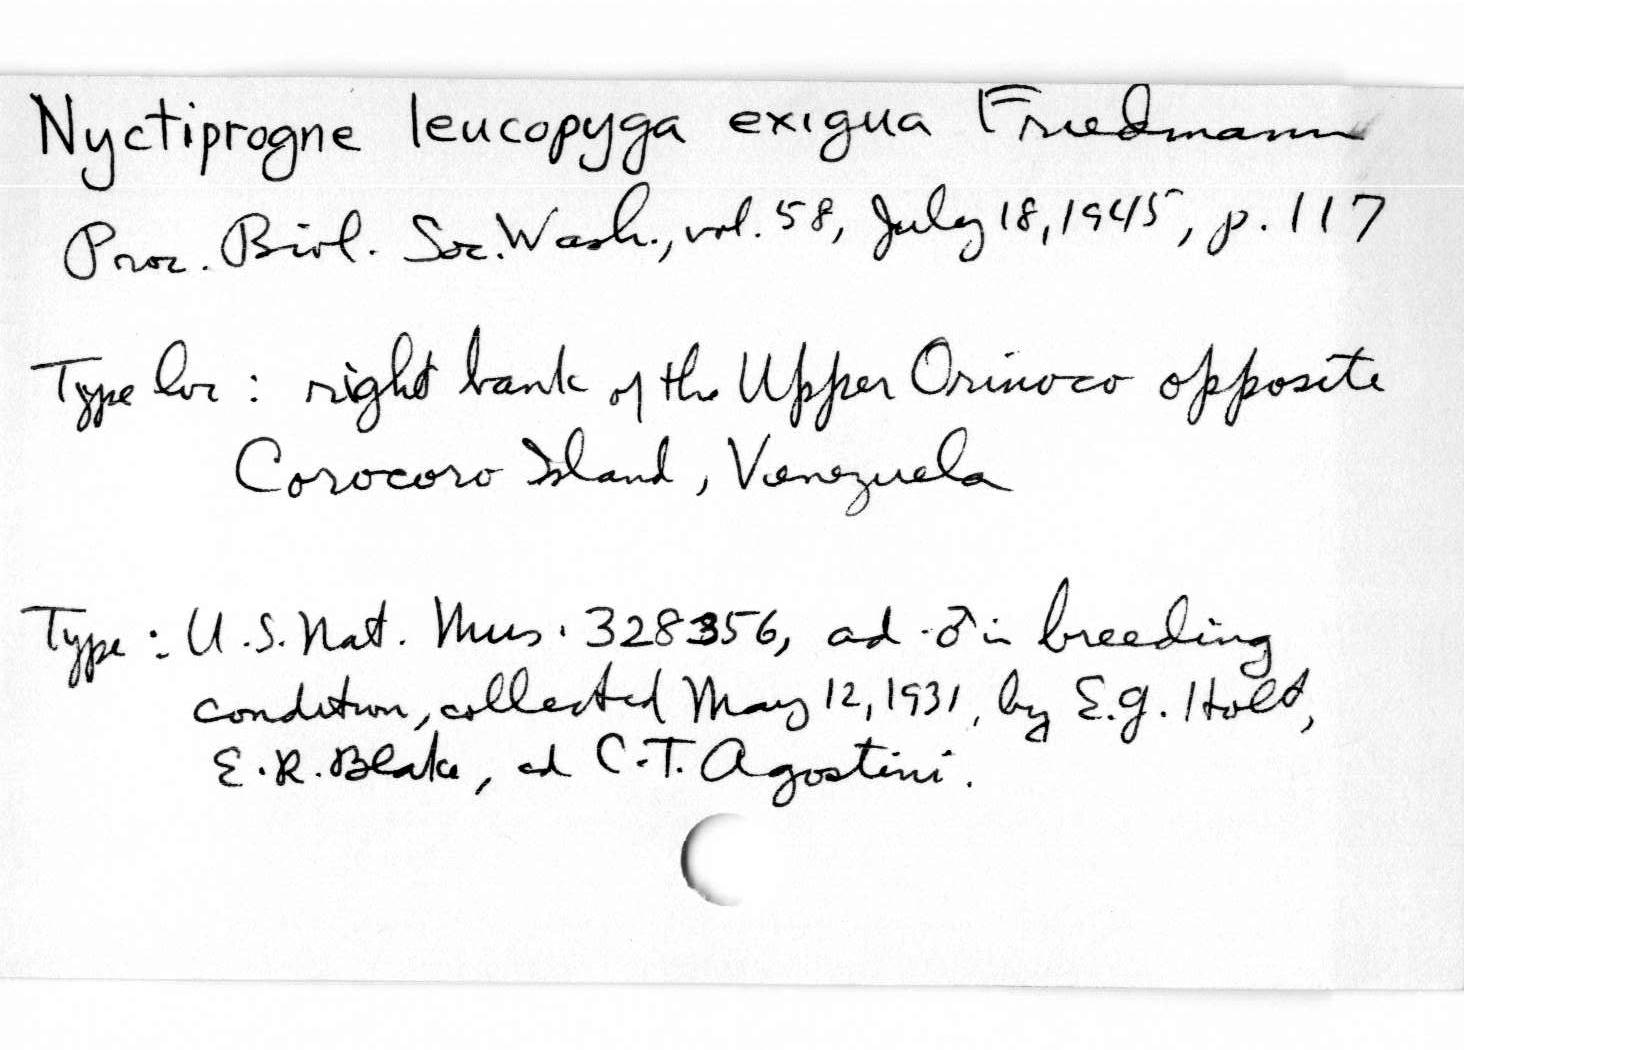 Nyctiprogne leucopyga exigua Friedmann
Proc. Biol. Soc. Wash., vol. 58, July 18, 1945, p. 117
Type loc : right bank of the Upper Orinoco opposite
Corocoro Island, Venezuela
Type : U.S. Nat. Mus. 328356, ad. ♂ in breeding
condition, collected May 12, 1931, by E.G. Holt,
E.R. Blake, ad C.T. Agostini.